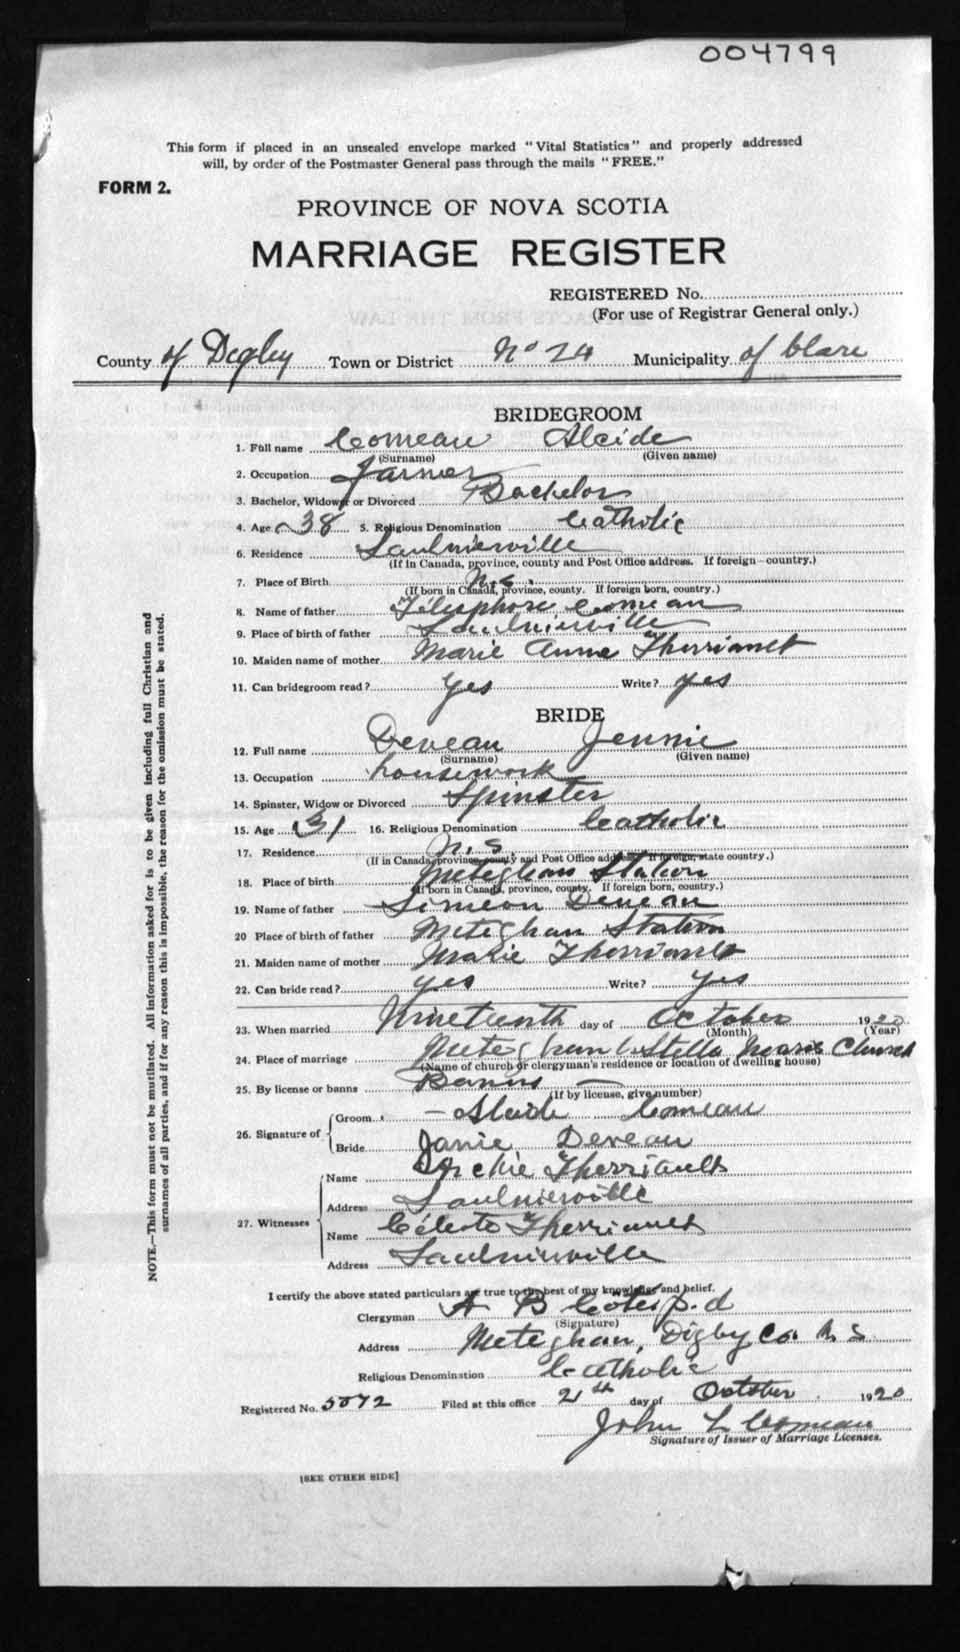 004799
This form if placed in an unsealed envelope marked "Vital Statistics" and properly addressed
will, by order of the Postmaster General pass through the mails "FREE."
FORM 2.
PROVINCE OF NOVA SCOTIA
MARRIAGE REGISTER
REGISTERED No.
(For use of Registrar General only.)
County of Digby Town or District No 24 Municipality of Clare
BRIDEGROOM
1. Full name Comeau Alcide
(Surname) (Given name)
2. Occupation Farmer
3. Bachelor, Widower or Divorced Bachelor
4. Age 38 5. Religious Denomination Catholic
6. Residence Saulnierville
(If in Canada, province, county and Post Office address. If foreign—country.)
7. Place of Birth N.S.
(If born in Canada, province, county. If foreign born, country.)
8. Name of father Télesphore Comeau
9. Place of birth of father Saulnierville
10. Maiden name of mother Marie Anne Therriault
11. Can bridegroom read? Yes Write? yes
BRIDE
12. Full name Deveau Jennie
(Surname) (Given name)
13. Occupation housework
14. Spinster, Widow or Divorced Spinster
15. Age 31 16. Religious Denomination Catholic
17. Residence N.S
(If in Canada, province, county and Post Office address. If foreign, state country.)
18. Place of birth Meteghan Station
(If born in Canada, province, county. If foreign born, country.)
19. Name of father Simeon Deveau
20 Place of birth of father Meteghan Station
21. Maiden name of mother Marie Therriault
22. Can bride read? yes Write? yes
23. When married Nineteenth day of October 1920
(Month) (Year)
24. Place of marriage Meteghan Stella Maris Church
(Name of church or clergyman's residence or location of dwelling house)
25. By license or banns Banns —
(If by license, give number)
26. Signature of Groom Alcide Comeau
Bride Janie Deveau
27. Witnesses Name Archie Therriault
Address Saulnierville
Name Céleste Therriault
Address Saulnierville
I certify the above stated particulars are true to the best of my knowledge and belief.
Clergyman A B Côté p.d
(Signature)
Address Meteghan, Digby Co. N S
Religious Denomination Catholic
Registered No. 5072 Filed at this office 21st day of October 1920
John L Comeau
Signature of Issuer of Marriage Licenses.
[SEE OTHER SIDE]
NOTE.—This form must not be mutilated. All information asked for is to be given including full Christian and
surnames of all parties, and if for any reason this is impossible, the reason for the omission must be stated.